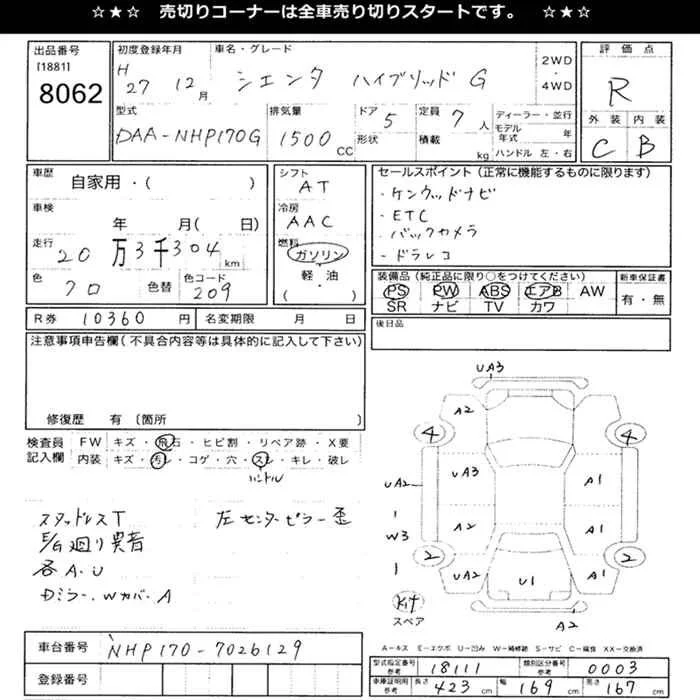 ☆★☆ 売切りコーナーは全車売り切りスタートです。 ☆★☆
出品番号
[1881]
8062
初度登録年月
H
27 12月
車名・グレード
シエンタ ハイブリッド G
2WD
・
4WD
評価点
R
外装 内装
C B
型式
DAA-NHP170G
排気量
1500 CC
ドア 5
形状
定員 7人
積載 kg
ディーラー・並行
モデル年式 年
ハンドル 左・右
車歴
自家用・( )
車検
年 月( 日)
走行
20万3千304 km
色
クロ
色替
色コード
209
シフト
AT
冷房
AAC
燃料
ガソリン
・
軽・油
( )
セールスポイント(正常に機能するものに限ります)
・ケンウッドナビ
・ETC
・バックカメラ
・ドラレコ
装備品(純正品に限り○をつけてください)
PS PW ABS エアB AW
SR ナビ TV カワ
新車保証書
有・無
R券 10360 円
名変期限 月 日
後日品
注意事項申告欄(不具合内容等は具体的に記入して下さい)
修復歴 有〔箇所 〕
検査員記入欄
FW キズ・飛石・ヒビ割・リペア跡・X要
内装 キズ・汚レ・コゲ・穴・スレ・キレ・破レ
ハンドル
スタッドレスT
左センターピラー歪
E/G廻り異音
各A・U
Dミラー、Wカバー、A
UA3
A2
4
4
UA2
UA3
A1
1
W3
1
A2
A1
2
2
UA2
U1
A1
Kit
スペア
A2
A-キズ E-エクボ U-凹み W-補修跡 S-サビ C-腐蝕 XX-交換済
車台番号
NHP170-7026129
登録番号
型式指定番号
参考
18111
類別区分番号
参考
0003
車庫証明用
参考
長さ 423 cm
幅 169 cm
高さ 167 cm